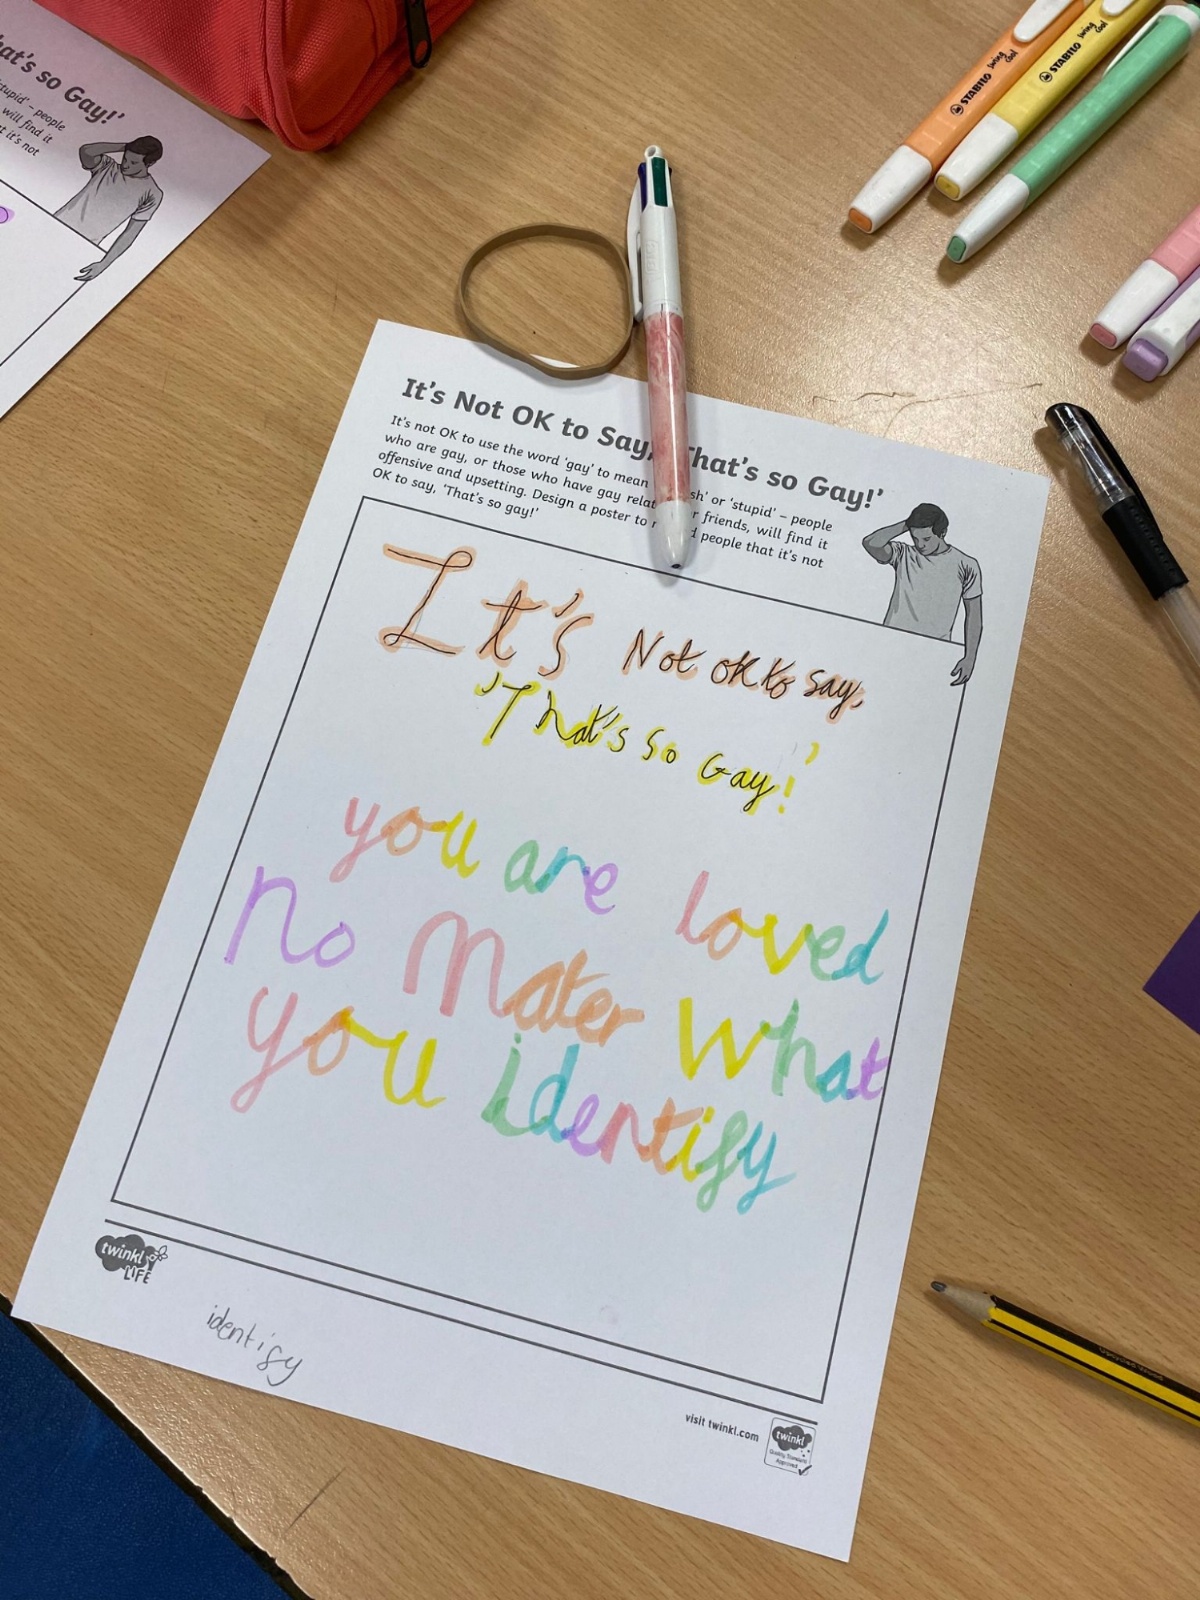 hat's so Gay!'
stupid' – people
will find it
t it's not
STABILO swing cool
STABILO swing cool
It's Not OK to Say, That's so Gay!'
It's not OK to use the word 'gay' to mean sh' or 'stupid' – people
who are gay, or those who have gay relat r friends, will find it
offensive and upsetting. Design a poster to r d people that it's not
OK to say, 'That's so gay!'
It's Not ok to say,
'That's so Gay!'
you are loved
No Mater What
you identify
twinkl
LIFE
identify
visit twinkl.com
twinkl
Quality Standard
Approved